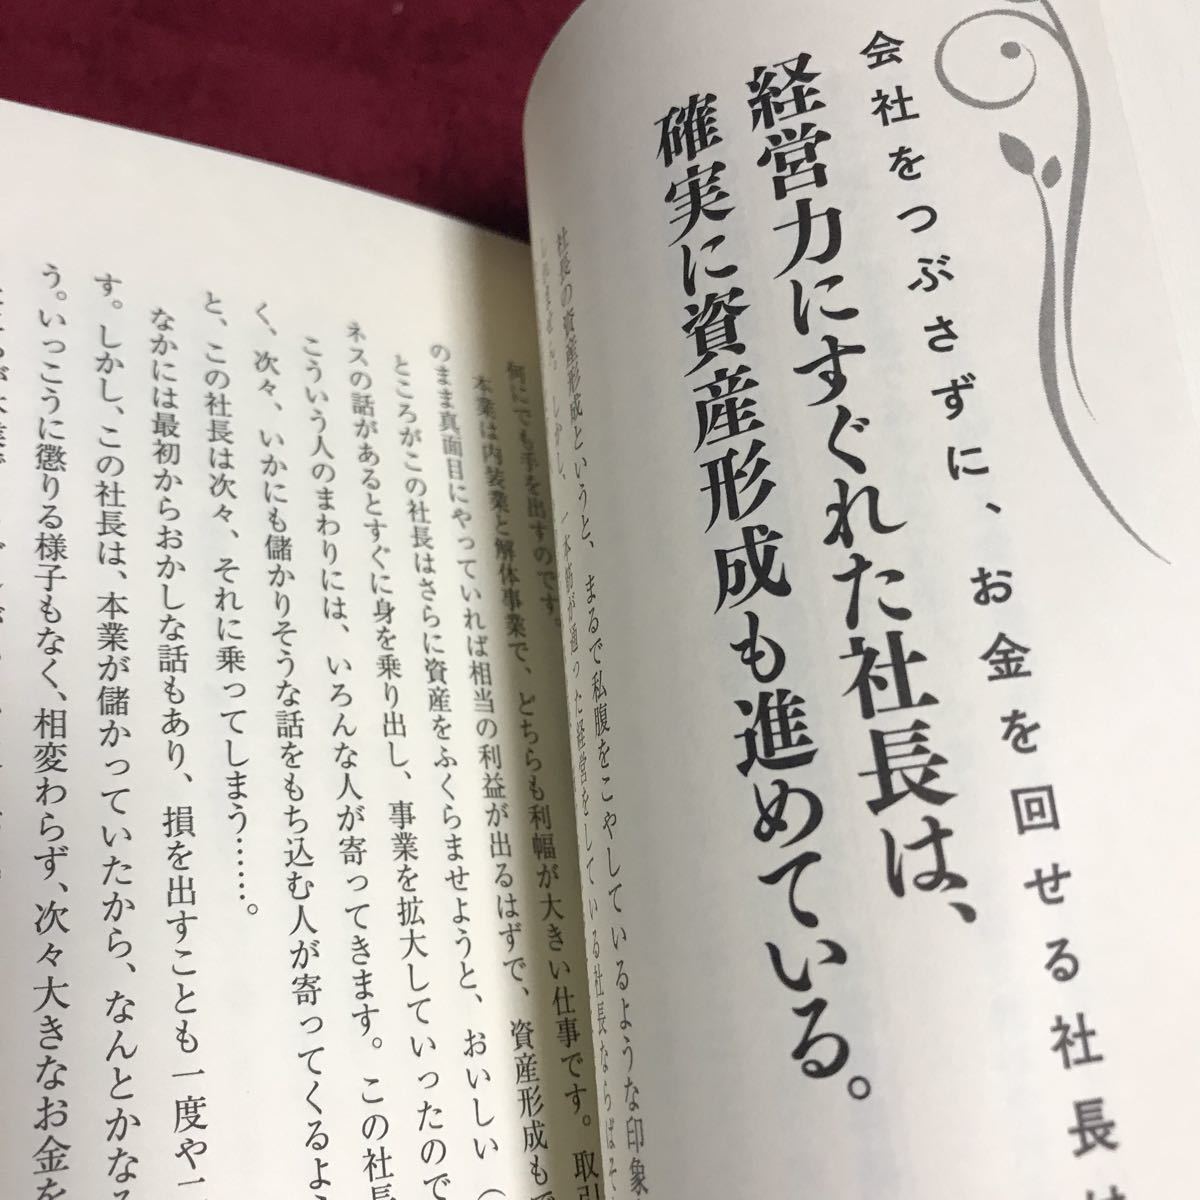 会社をつぶさずに、お金を回せる社長は
経営力にすぐれた社長は、
確実に資産形成も進めている。
社長の資産形成というと、まるで私腹をこやしているような印象
しかし、一本筋が通った経営をしている社長ならば
何にでも手を出すのです。
本業は内装業と解体事業で、どちらも利幅が大きい仕事です。取引
のまま真面目にやっていれば相当の利益が出るはずで、資産形成もで
ところがこの社長はさらに資産をふくらませようと、おいしい
ネスの話があるとすぐに身を乗り出し、事業を拡大していったので
こういう人のまわりには、いろんな人が寄ってきます。この社長
く、次々、いかにも儲かりそうな話をもち込む人が寄ってくるよ
と、この社長は次々、それに乗ってしまう……。
なかには最初からおかしな話もあり、損を出すことも一度や二
す。しかし、この社長は、本業が儲かっていたから、なんとかなる
う。いっこうに懲りる様子もなく、相変わらず、次々大きなお金を